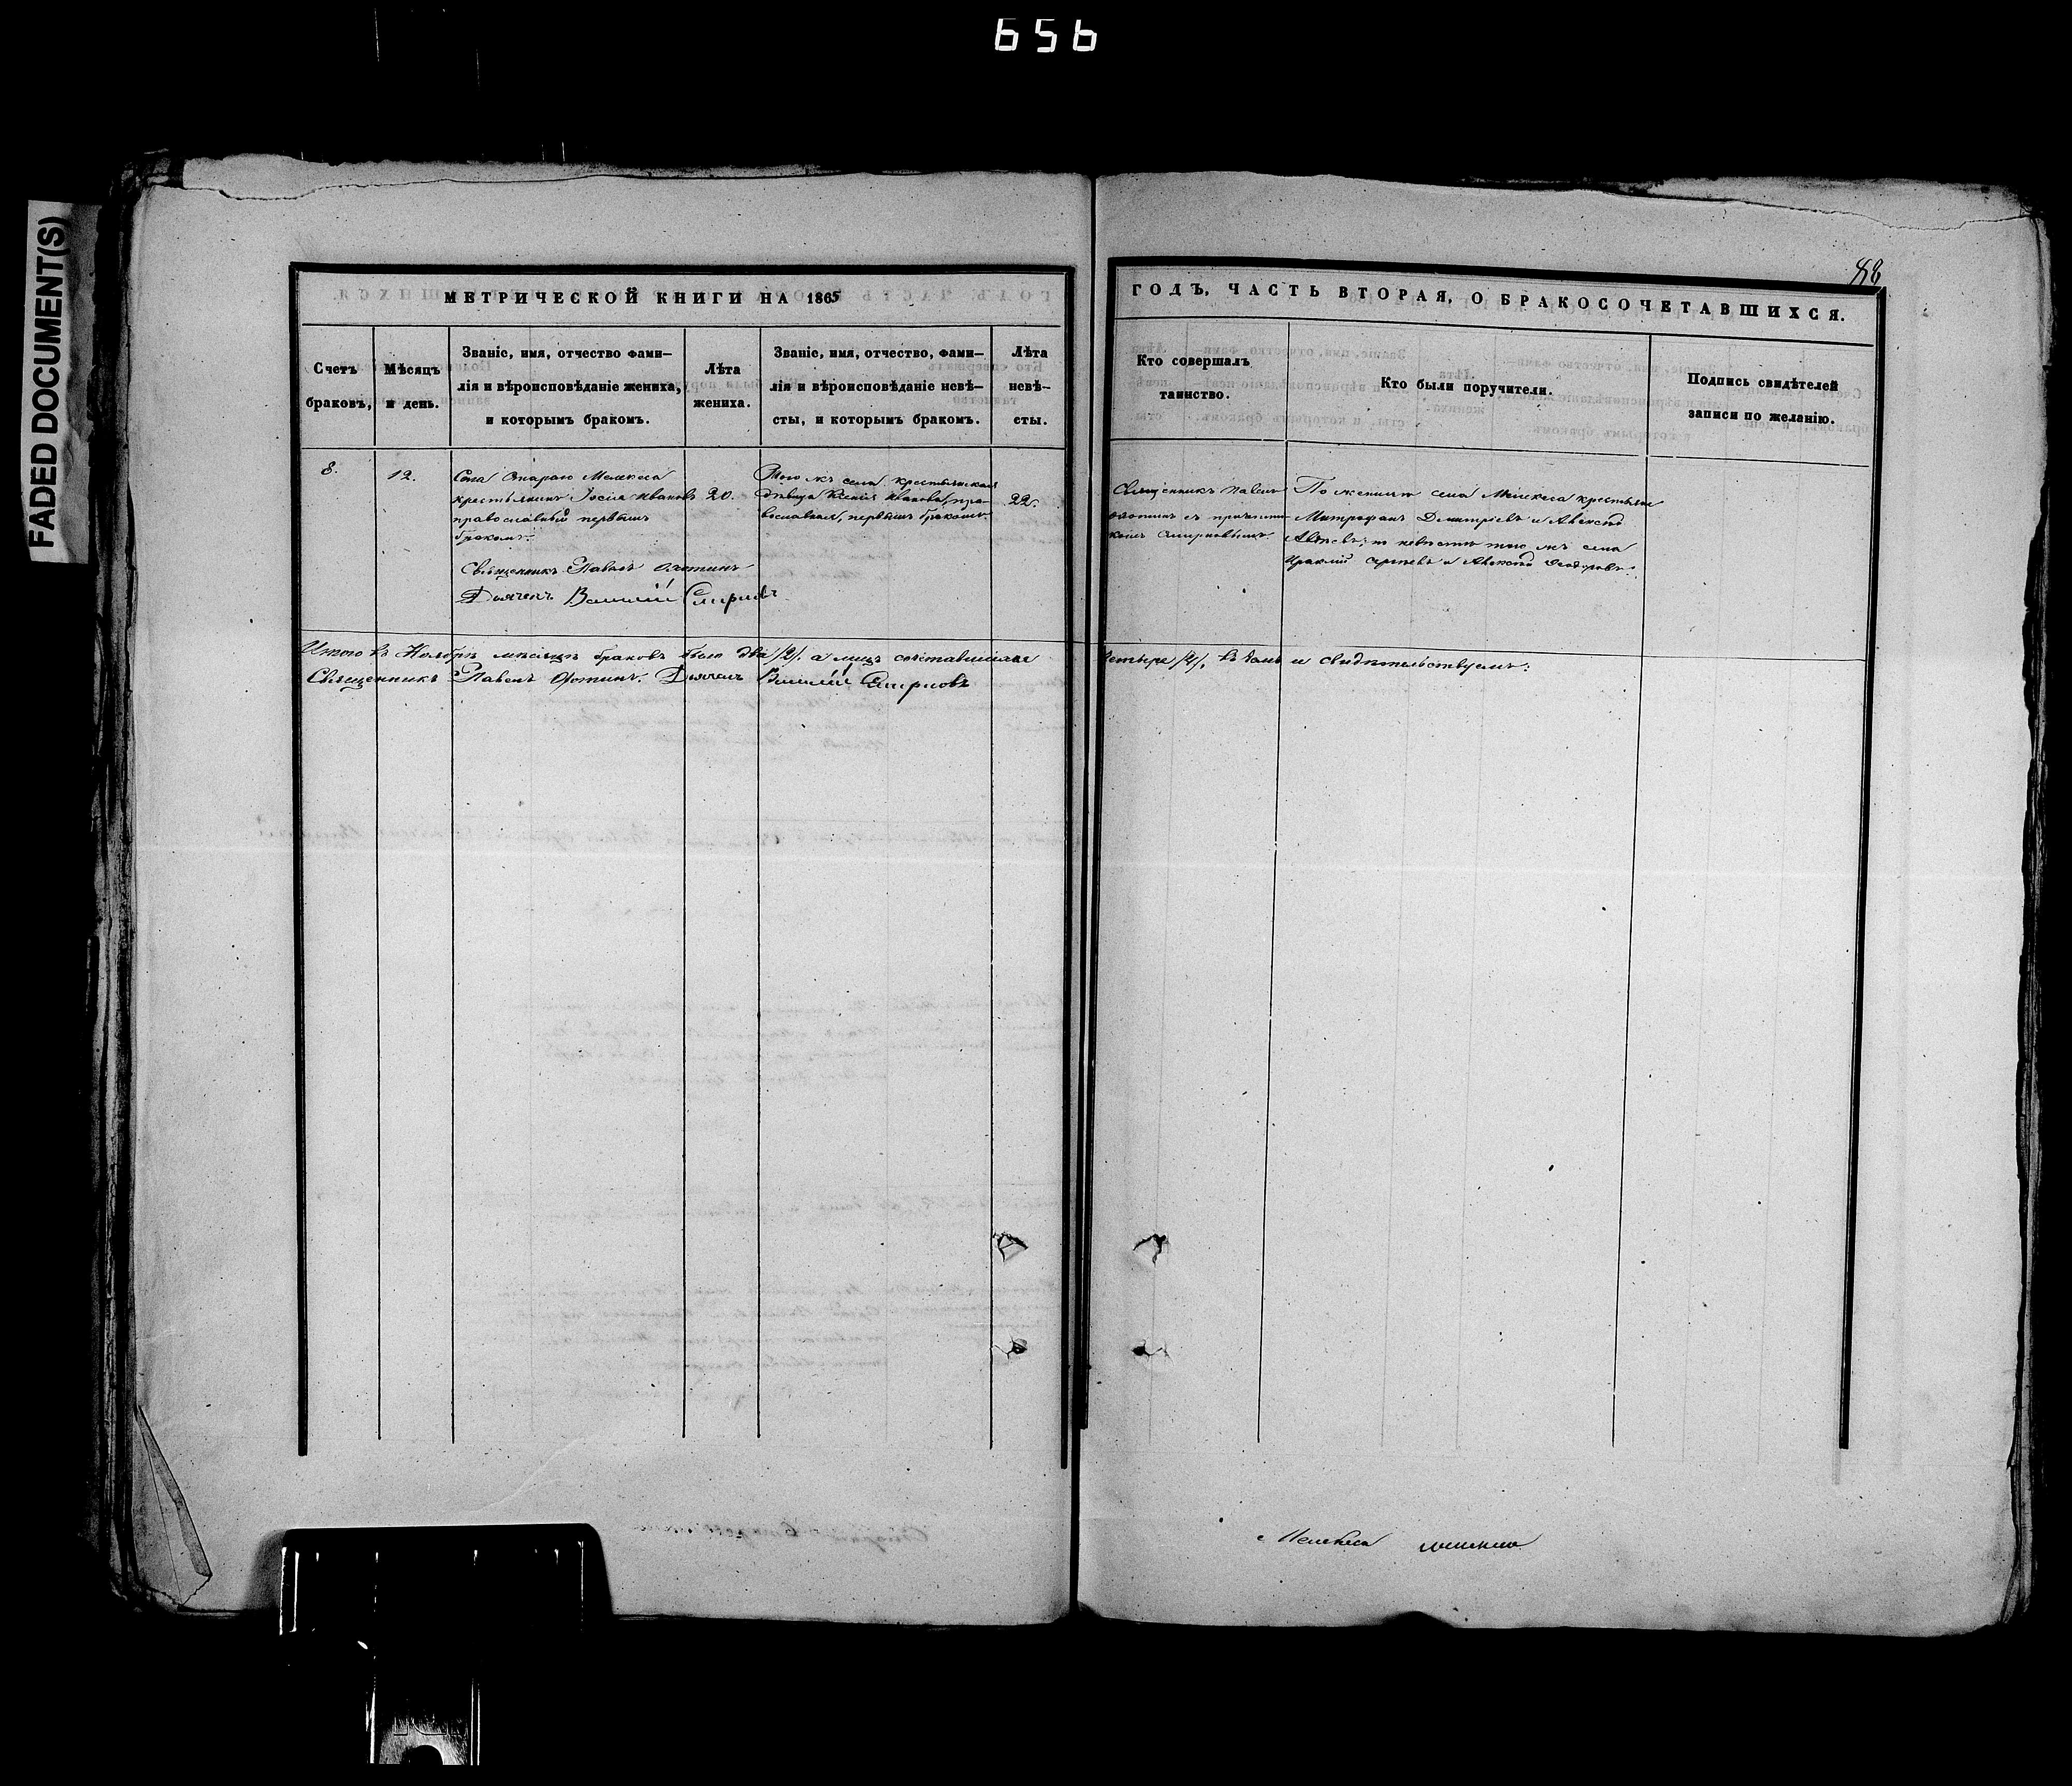 656
FADED DOCUMENT(S)
88
МЕТРИЧЕСКОЙ КНИГИ НА 1865
ГОДЪ, ЧАСТЬ ВТОРАЯ, О БРАКОСОЧЕТАВШИХСЯ.
Счетъ
браковъ,
Мѣсяцъ
и день.
Званіе, имя, отчество фами-
лія и вѣроисповѣданіе жениха,
и которымъ бракомъ.
Лѣта
жениха.
Званіе, имя, отчество, фами-
лія и вѣроисповѣданіе невѣ-
сты, и которымъ бракомъ.
Лѣта
невѣ-
сты.
Кто совершалъ
таинство.
Кто были поручители.
Подпись свидѣтелей
записи по желанію.
8.
12.
Села Стараго Мелекеса
крестьянинъ Іосія Ивановъ
православный первымъ
бракомъ.
20.
Того жъ села крестьянская
дѣвица Ксенія Иванова, пра-
вославная, первымъ бракомъ.
22.
Священникъ Павелъ
Охотинъ съ причетни-
комъ Смирновымъ
По женихѣ села Мелекеса крестьяне
Митрофанъ Димитріевъ и Алексѣй
по невѣстѣ того жъ села
Ираклій Сергѣевъ и Алексѣй Ѳеодоровъ.
Священникъ Павелъ Охотинъ
Дьячекъ Василій Смирновъ
Итого въ Ноябрѣ мѣсяцѣ браковъ было два /2/. а лицъ сочетавшихся
четыре /4/, въ томъ и свидѣтельствуемъ:
Священникъ Павелъ Охотинъ. Дьячекъ Василій Смирновъ
Мелекеса